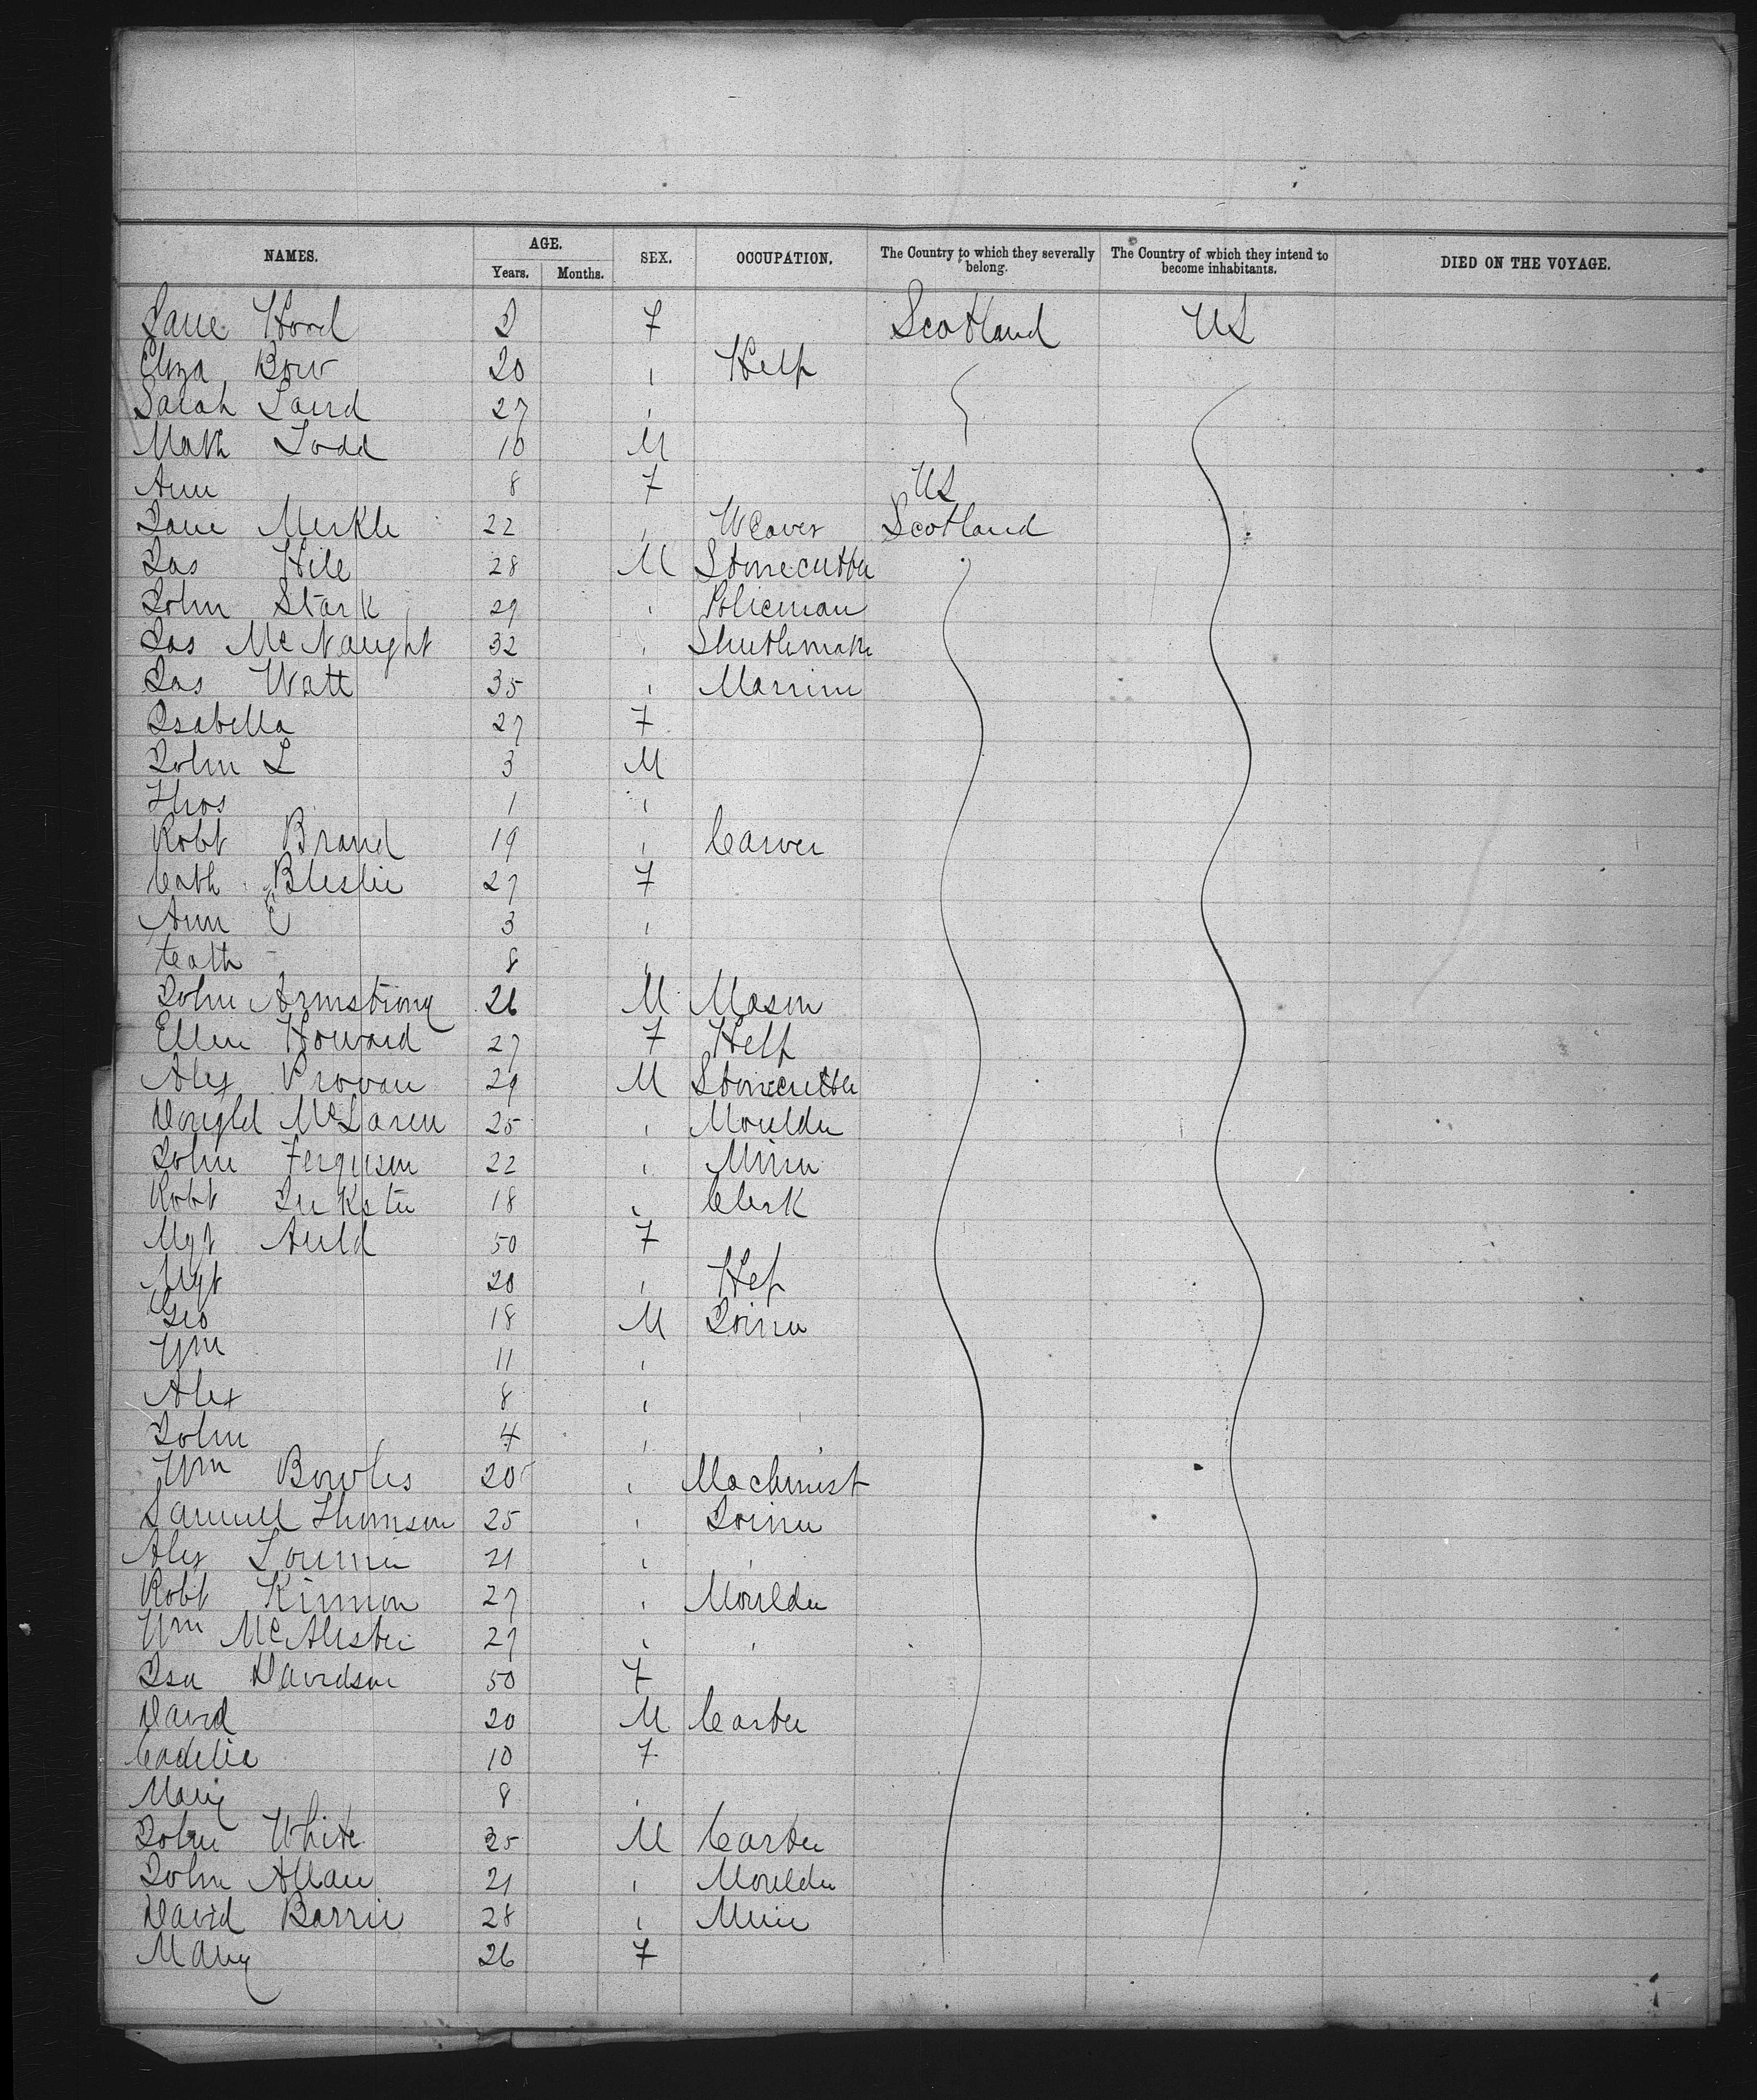 NAMES. AGE. SEX. OCCUPATION. The Country to which they severally belong. The Country of which they intend to become inhabitants. DIED ON THE VOYAGE.
Years. Months.
Jane Hood 2 F Scotland US
Eliza Bow 20 " Help
Sarah Laird 27 "
Math Todd 10 M
Ann 8 F US
Jane Merkle 22 " Weaver Scotland
Jas Hile 28 M Stonecutter
John Stark 29 " Policeman
Jas McNaught 32 " Shuttlemake
Jas Watt 35 " Marrine
Isabella 27 F
John L 3 M
Thos 1 "
Robt Brand 19 " Carver
Cath Bleslie 27 F
Ann C 3 "
Cath 8 "
John Armstrong 26 M Mason
Ellen Howard 27 F Help
Alex Provan 29 M Stonecutter
Dougld McLaren 25 " Moulder
John Ferguson 22 " Miner
Robt 18 " Clerk
Mgt Auld 50 F
Mgt 20 " Hep
Geo 18 M Joiner
Wm 11 "
Alex 8 "
John 4 "
Wm Bowles 20 " Machinist
Samuel Thomson 25 " Joiner
Alex Lourrie 21 " "
Robt Kinmon 27 " Moulder
Wm McAlister 27 " "
Isa Davidson 50 F
David 20 M Carter
Cadelia 10 F
Mary 8 "
John White 25 M Carter
John Allan 21 " Moulder
David Barrie 28 " Miner
Mary 26 F